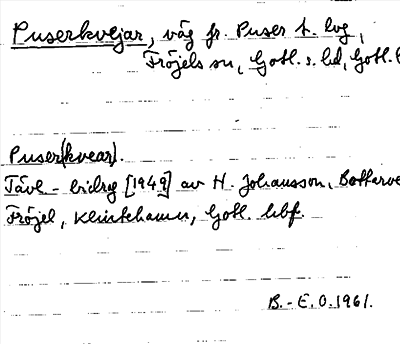 Puserkvejar, väg fr. Puser t. lvg,
Fröjels sn, Gotl. s. hd, Gotl. l
Puser(kvear).
Tävl-bidrag [1949] av H. Johansson, Bottarve
Fröjel, Klintehamn, Gotl. hbf.
B.-E.O.1961.